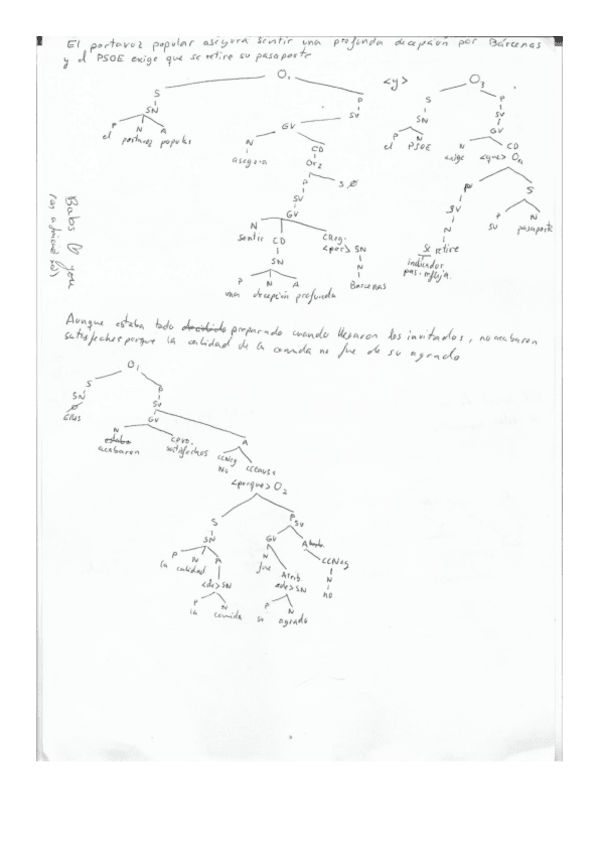 El portavoz popular asegura sentir una profunda decepción por Bárcenas
y el PSOE exige que se retire su pasaporte
O1 <y> O3
S P S P
SN SV SN SV
P N A GV P N GV
el portavoz popular N CD el PSOE N CD
asegura Or2 exige <que> O4
P S Ø PV S
SV SV P N
GV N su pasaporte
N CD CReg. se retire
sentir SN <por> SN indicador
P N A N pas. refleja
una decepción profunda Bárcenas
Babs you
(as a friend
Aunque estaba todo decidido preparado cuando llegaron los invitados, no acabaron
satisfechos porque la calidad de la comida no fue de su agrado
O1
S P
SN SV
Ø GV
Ellos N CPVO. A
estaba satisfechos CCNeg CCCausa
acabaron No <porque> O2
S P
SN SV
P N A GV A
la calidad N Atrib. CCNeg
<de> SN fue <de> SN N
P N P N no
la comida su agrado